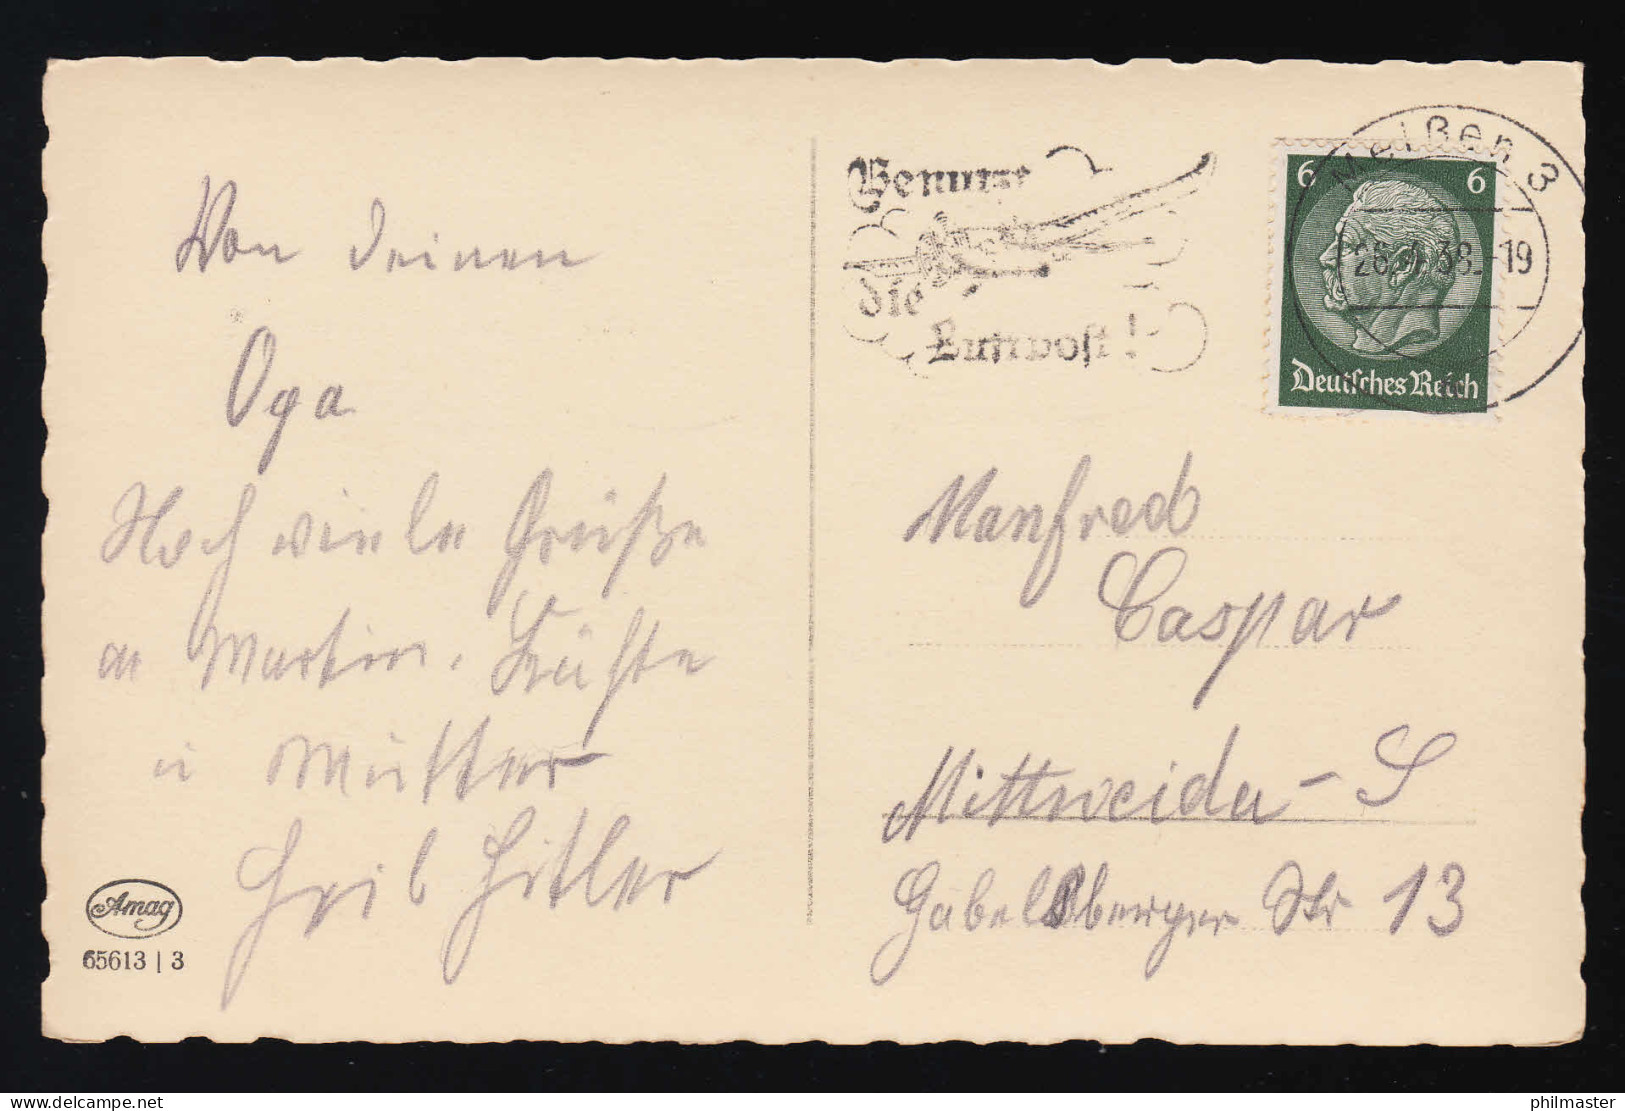 Von deinen
Opa
Noch viele Grüße
an Martin, Käthe
u Mutter
Heil Hitler
Amag
65613 | 3
Benutzt
die
Luftpost!
Meißen 3
26.4.38.-19
6 6
Deutsches Reich
Manfred
Caspar
Mittweida-S
Gabelsberger Str 13
philmaster